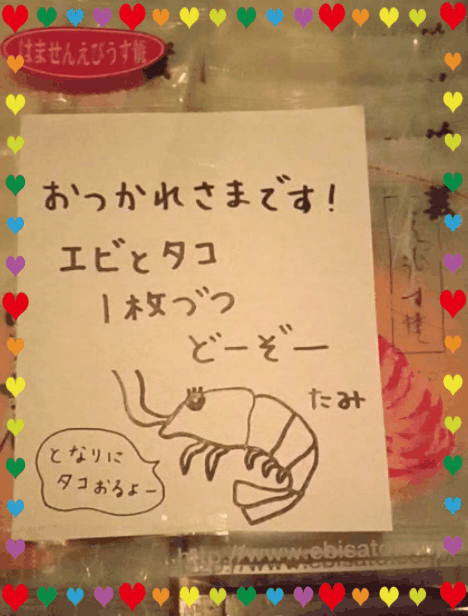 はませんえびうす焼
おつかれさまです!
エビとタコ
1枚づつ
どーぞー
たみ
となりに
タコおるよー
http://www.ebisato